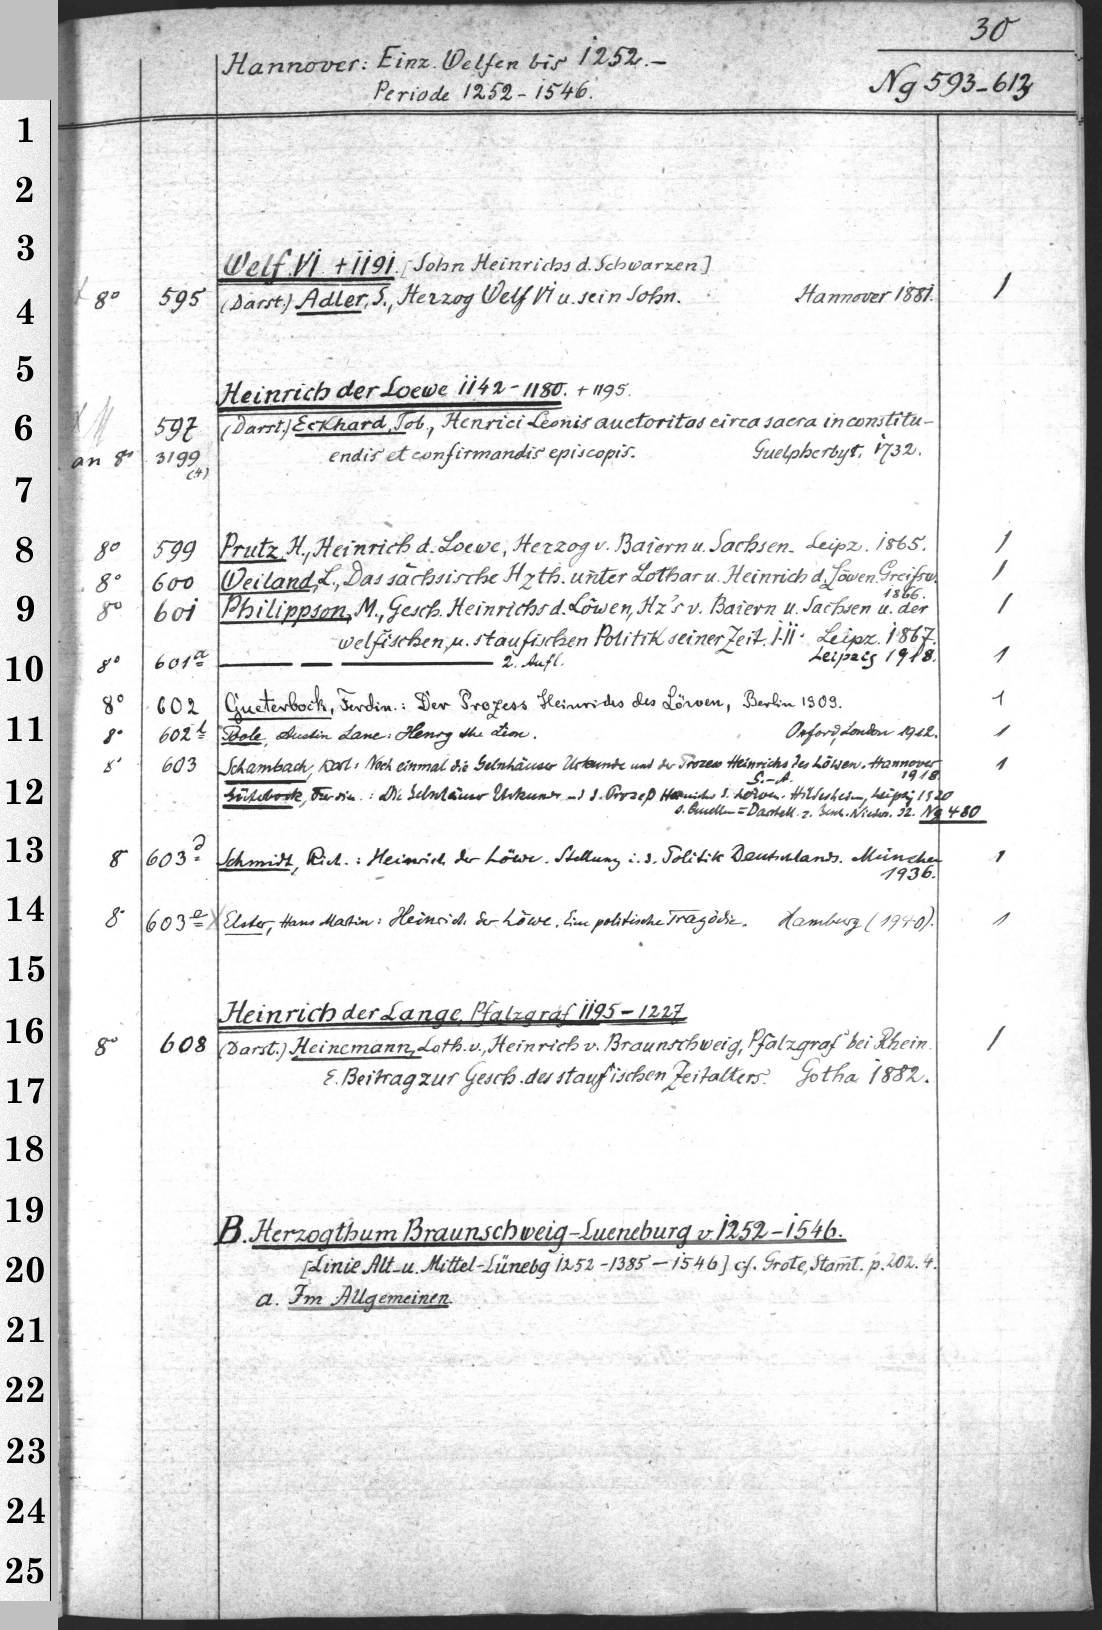 30
Hannover: Einz. Welfen bis 1252.–
Periode 1252–1546.
Ng 593–613
1
2
3
Welf VI +1191. [Sohn Heinrichs d. Schwarzen]
4
8° 595 (Darst.) Adler, S., Herzog Welf VI u. sein Sohn. Hannover 1881. 1
5
Heinrich der Loewe 1142–1180. +1195.
6
597 (Darst.) Eckhard, Tob., Henrici Leonis auctoritas circa sacra in constitu–
an 8° 3199 (4) endis et confirmandis episcopis. Guelpherbyt. 1732.
7
8
8° 599 Prutz, H., Heinrich d. Loewe, Herzog v. Baiern u. Sachsen. Leipz. 1865. 1
8° 600 Weiland, L., Das sächsische Hzth. unter Lothar u. Heinrich d. Löwen. Greifsw. 1866. 1
9
8° 601 Philippson, M., Gesch. Heinrichs d. Löwen, Hz's v. Baiern u. Sachsen u. der 1
welfischen u. staufischen Politik seiner Zeit. I.II. Leipz. 1867.
10
8° 601a ——— — ——— 2. Aufl. Leipzig 1918. 1
8° 602 Gueterbock, Ferdin.: Der Prozess Heinrichs des Löwen, Berlin 1909. 1
11
8° 602b Poole, Austin Lane: Henry the Lion. Oxford, London 1912. 1
8° 603 Schambach, Karl: Noch einmal die Gelnhäuser Urkunde und der Prozess Heinrichs des Löwen. Hannover 1918 1
S.-A.
12
Güterbock, Ferdin.: Die Gelnhäuser Urkunde und d. Prozeß Heinrichs d. Löwen. Hildesheim, Leipzig 1920
s. Quellen = Darstell. z. Gesch. Nieders. 32. Ng 480
13
8° 603d Schmidt, Rich.: Heinrich der Löwe. Stellung i. d. Politik Deutschlands. München 1936. 1
14
8° 603e Elster, Hans Martin: Heinrich der Löwe. Eine politische Tragödie. Hamburg (1940). 1
15
Heinrich der Lange, Pfalzgraf 1195–1227
16
8° 608 (Darst.) Heinemann, Loth. v., Heinrich v. Braunschweig, Pfalzgraf bei Rhein. 1
17
E. Beitrag zur Gesch. des staufischen Zeitalters. Gotha 1882.
18
19
B. Herzogthum Braunschweig–Lueneburg v. 1252–1546.
20
[Linie Alt- u. Mittel-Lünebg 1252–1385–1546] cf. Grote, Stamt. p. 202. 4.
a. Im Allgemeinen
21
22
23
24
25